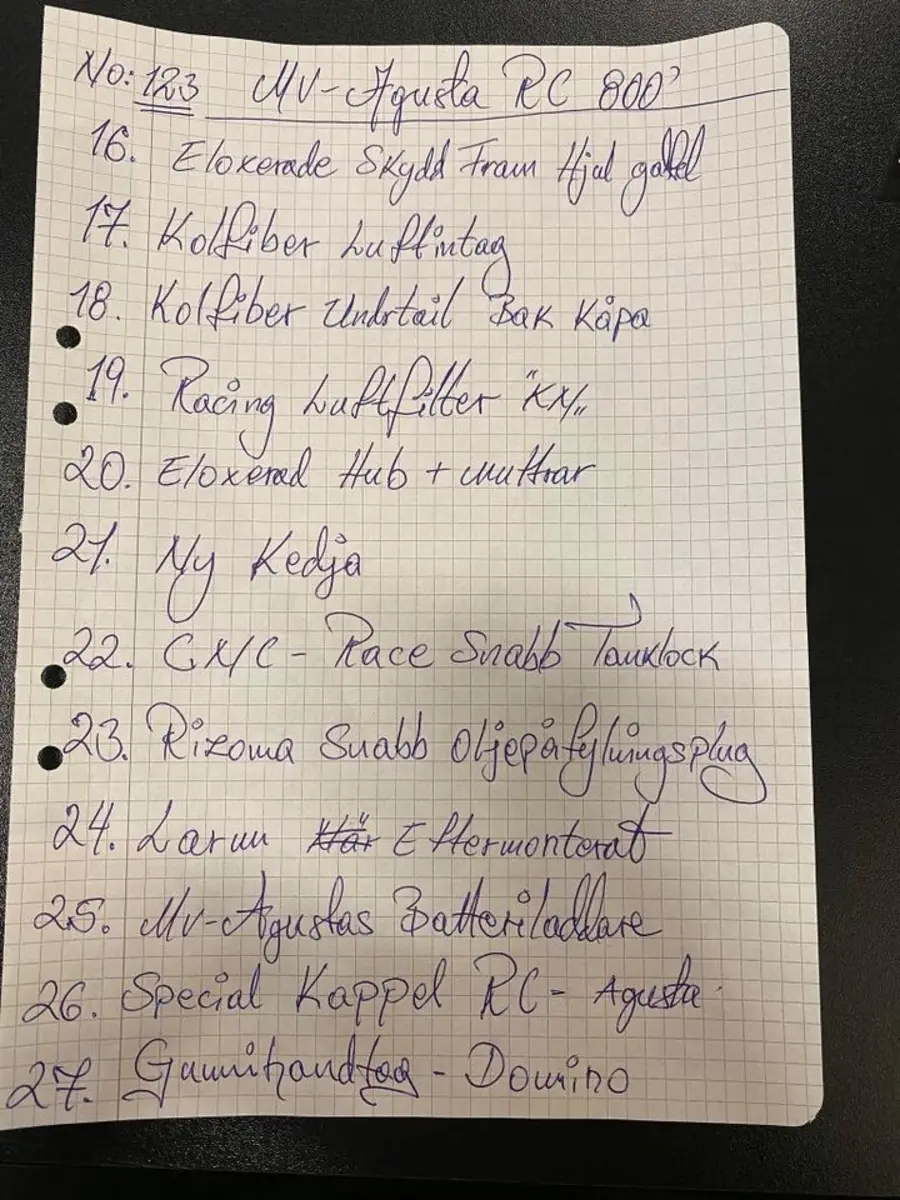 No: 123 MV-Agusta RC 800'
16. Eloxerade Skydd Fram Hjul gaffel
17. Kolfiber Luftintag
18. Kolfiber Undrtail Bak Kåpa
19. Racing Luftfilter "KN"
20. Eloxerad Hub + muttrar
21. Ny Kedja
22. CNC - Race Snabb Tanklock
23. Rizoma Snabb Oljepåfylningsplug
24. Larm Här Eftermonterat
25. MV-Agustas Batteriladdare
26. Special Kappel RC - Agusta
27. Gummihandtag - Domino